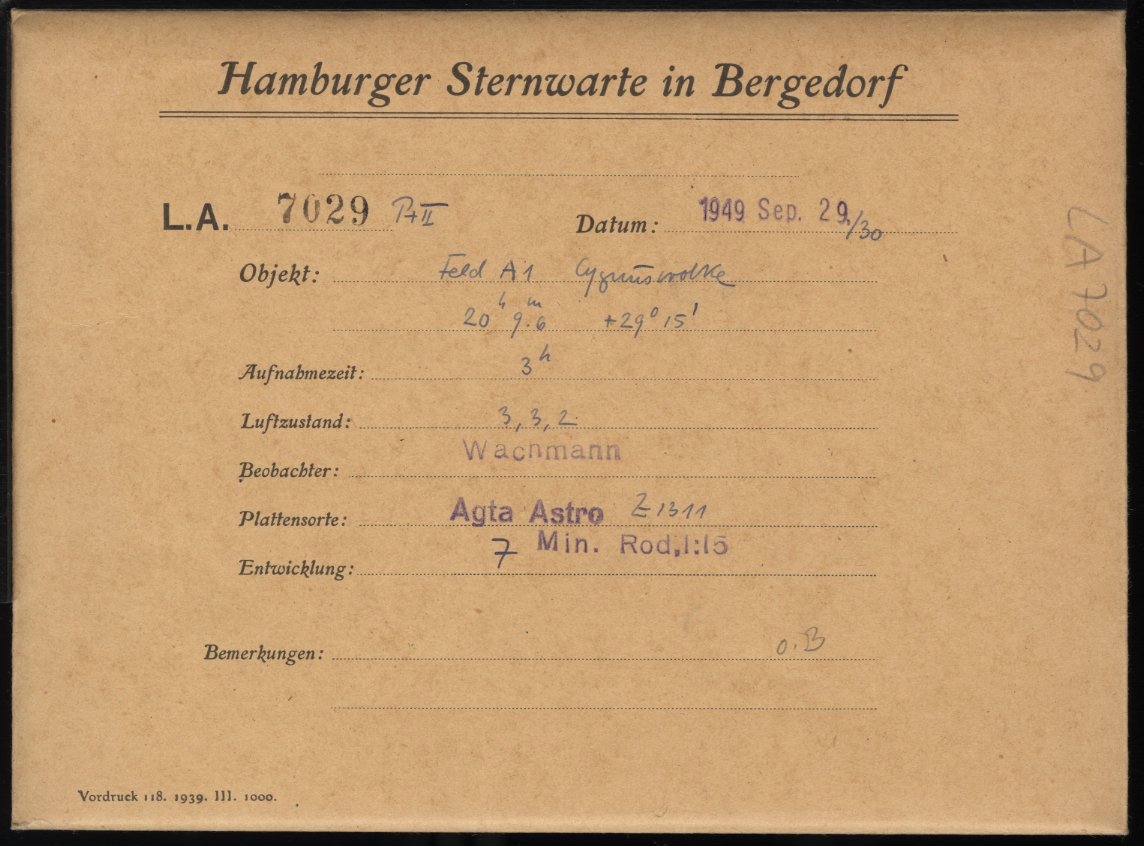 Hamburger Sternwarte in Bergedorf
L.A. 7029 Pt II Datum: 1949 Sep. 29./30
Objekt: Feld A1 Cygnuswolke
20h 9.6m +29° 15'
Aufnahmezeit: 3h
Luftzustand: 3, 3, 2
Beobachter: Wachmann
Plattensorte: Agfa Astro Z 1311
Entwicklung: 7 Min. Rod. 1:15
Bemerkungen: o.B
Vordruck 118. 1939. III. 1000.
LA 7029